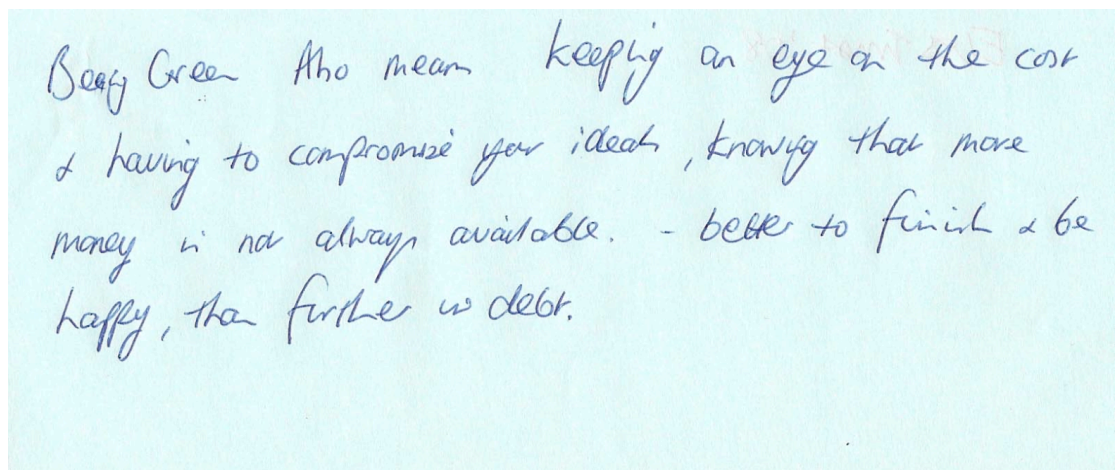 Being Green Also means keeping an eye on the cost
& having to compromise your ideals, knowing that more
money is not always available. - better to finish & be
happy, than further in debt.